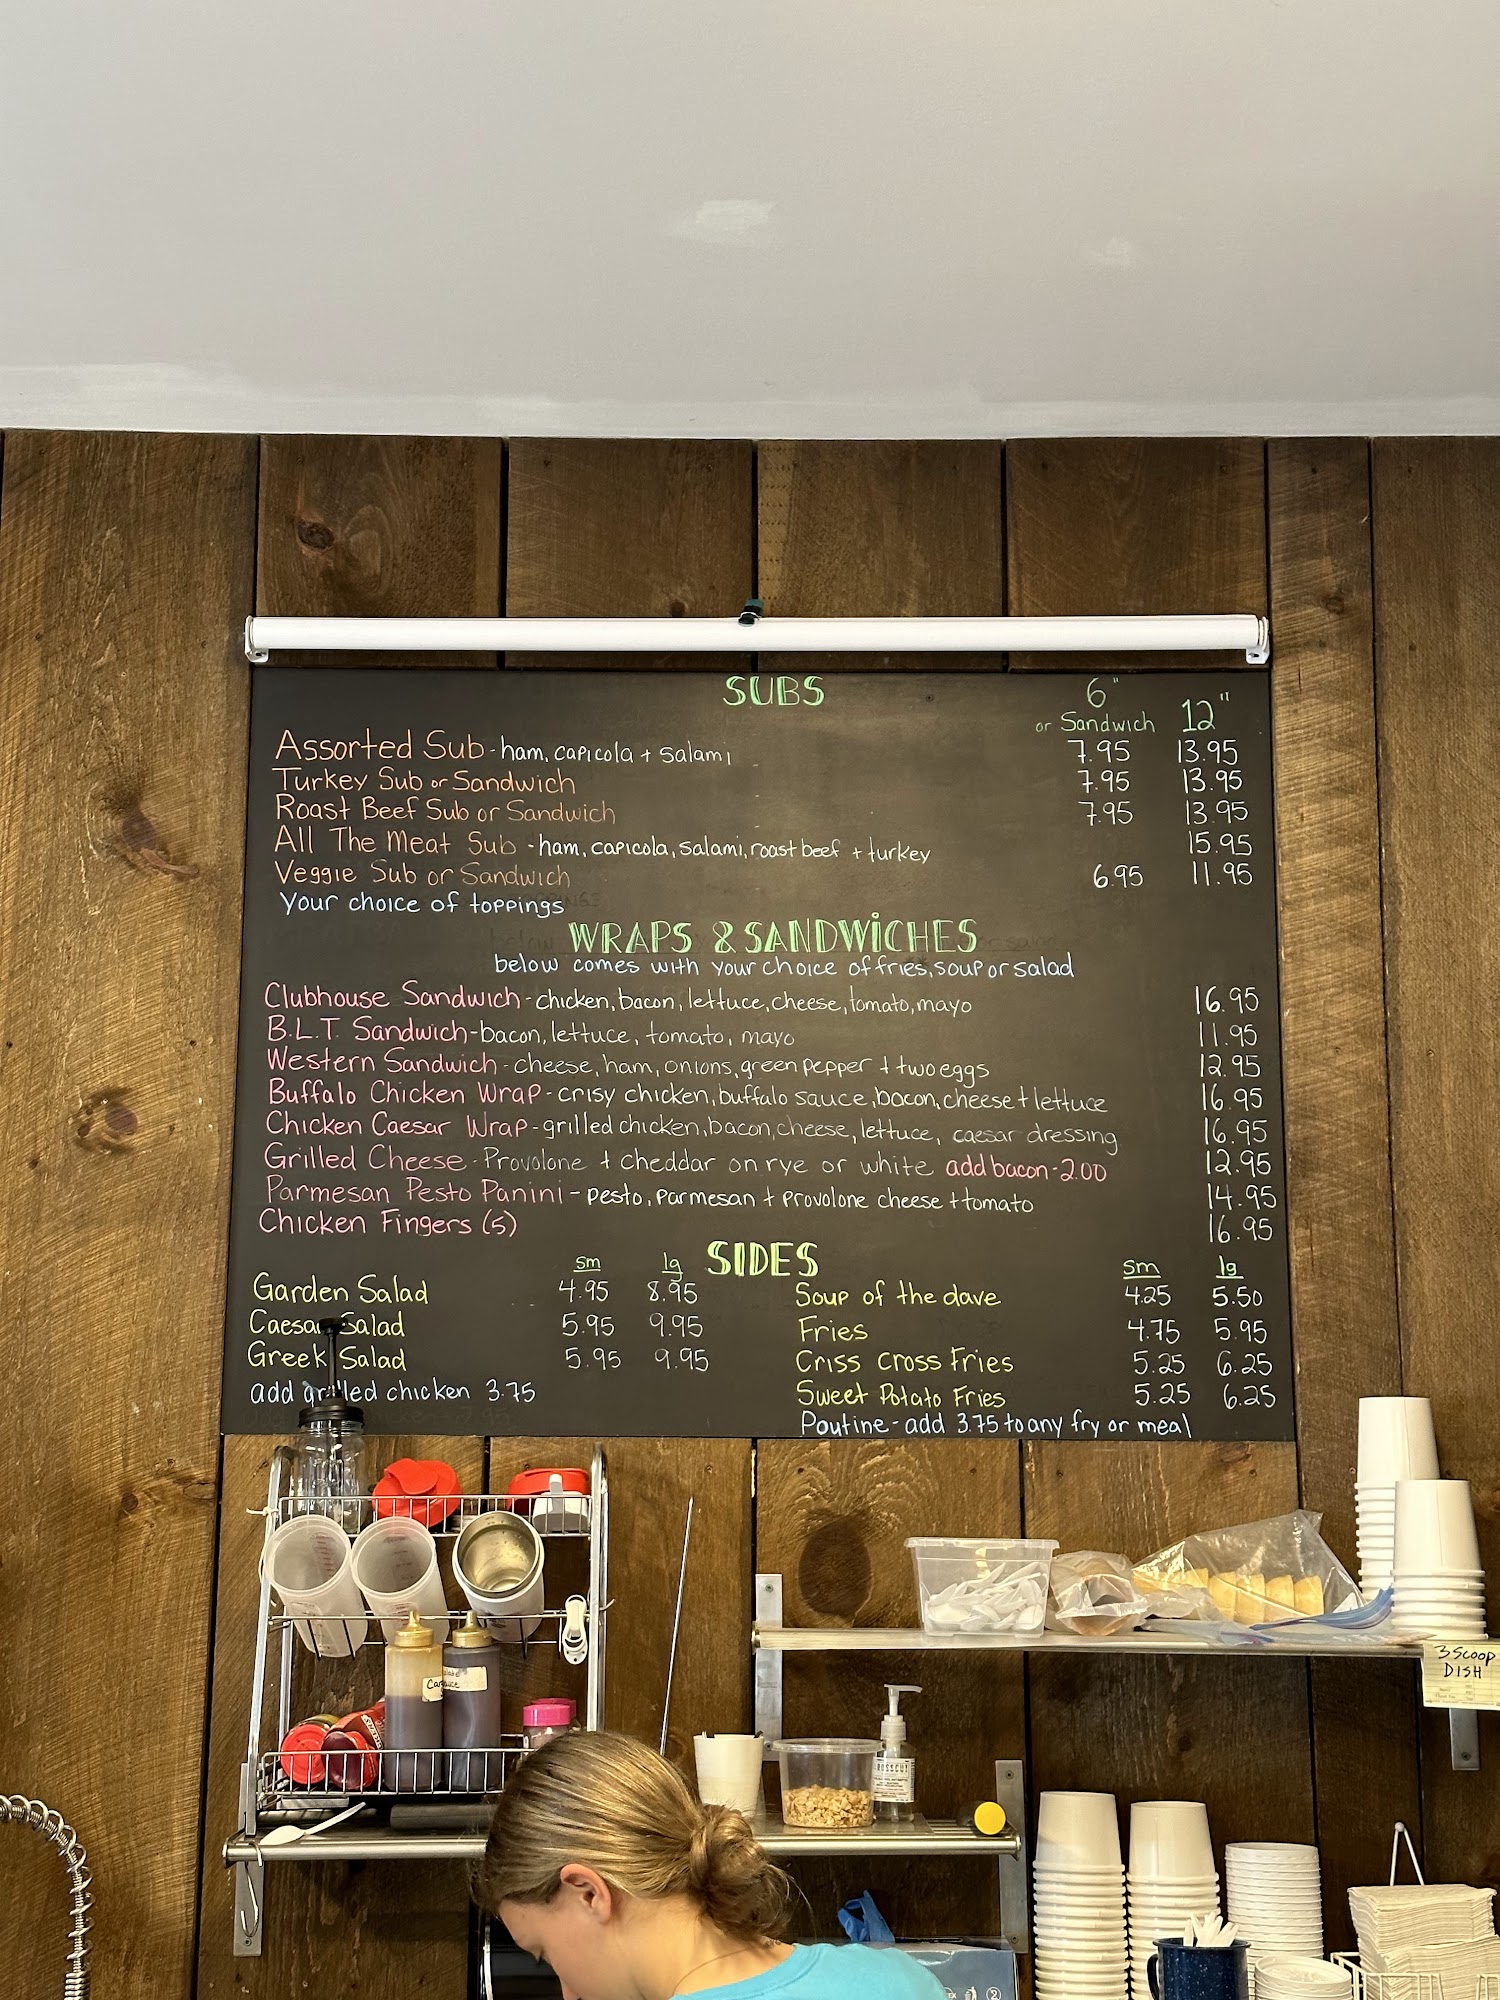 SUBS 6" 12"
or Sandwich
Assorted Sub - ham, capicola + salami 7.95 13.95
Turkey Sub or Sandwich 7.95 13.95
Roast Beef Sub or Sandwich 7.95 13.95
All The Meat Sub - ham, capicola, salami, roast beef + turkey 15.95
Veggie Sub or Sandwich 6.95 11.95
Your choice of toppings
WRAPS & SANDWiCHES
below comes with your choice of fries, soup or salad
Clubhouse Sandwich - chicken, bacon, lettuce, cheese, tomato, mayo 16.95
B.L.T. Sandwich - bacon, lettuce, tomato, mayo 11.95
Western Sandwich - cheese, ham, onions, green pepper + two eggs 12.95
Buffalo Chicken Wrap - crisy chicken, buffalo sauce, bacon, cheese + lettuce 16.95
Chicken Caesar Wrap - grilled chicken, bacon, cheese, lettuce, caesar dressing 16.95
Grilled Cheese - Provolone + cheddar on rye or white add bacon - 2.00 12.95
Parmesan Pesto Panini - pesto, parmesan + provolone cheese + tomato 14.95
Chicken Fingers (5) 16.95
SIDES
sm lg
Garden Salad 4.95 8.95
Caesar Salad 5.95 9.95
Greek Salad 5.95 9.95
add grilled chicken 3.75
sm lg
Soup of the dave 4.25 5.50
Fries 4.75 5.95
Criss Cross Fries 5.25 6.25
Sweet Potato Fries 5.25 6.25
Poutine - add 3.75 to any fry or meal
3 SCOOP
DISH